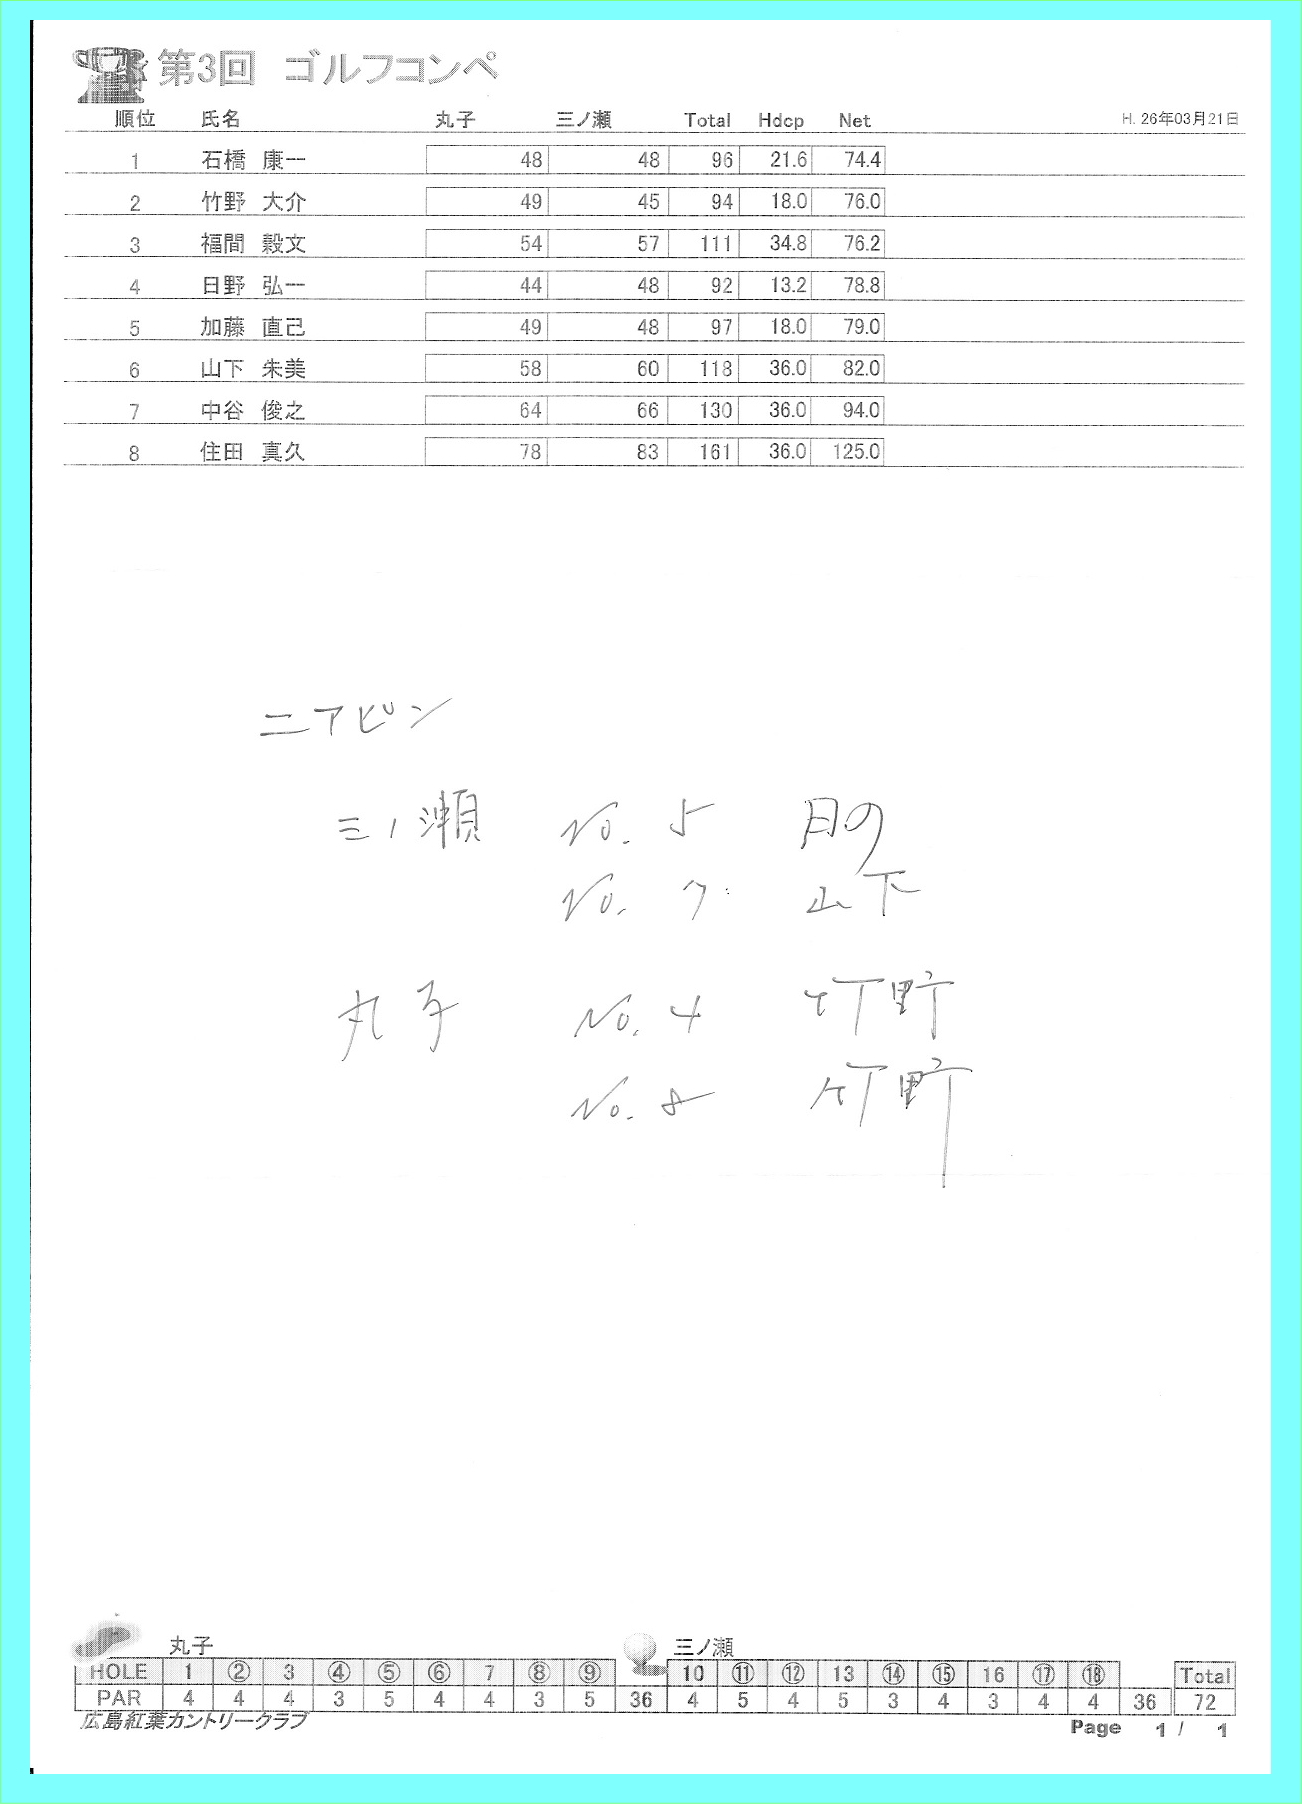 第3回 ゴルフコンペ
順位 氏名 丸子 三ノ瀬 Total Hdcp Net H. 26年03月21日
1 石橋 康一 48 48 96 21.6 74.4
2 竹野 大介 49 45 94 18.0 76.0
3 福間 毅文 54 57 111 34.8 76.2
4 日野 弘一 44 48 92 13.2 78.8
5 加藤 直己 49 48 97 18.0 79.0
6 山下 朱美 58 60 118 36.0 82.0
7 中谷 俊之 64 66 130 36.0 94.0
8 住田 真久 78 83 161 36.0 125.0
ニアピン
三ノ瀬 No. 5 日の
No. 7 山下
丸子 No. 4 竹野
No. 8 竹野
丸子 三ノ瀬
HOLE 1 ② 3 ④ ⑤ ⑥ 7 ⑧ ⑨ 10 ⑪ ⑫ 13 ⑭ ⑮ 16 ⑰ ⑱ Total
PAR 4 4 4 3 5 4 4 3 5 36 4 5 4 5 3 4 3 4 4 36 72
広島紅葉カントリークラブ
Page 1 / 1